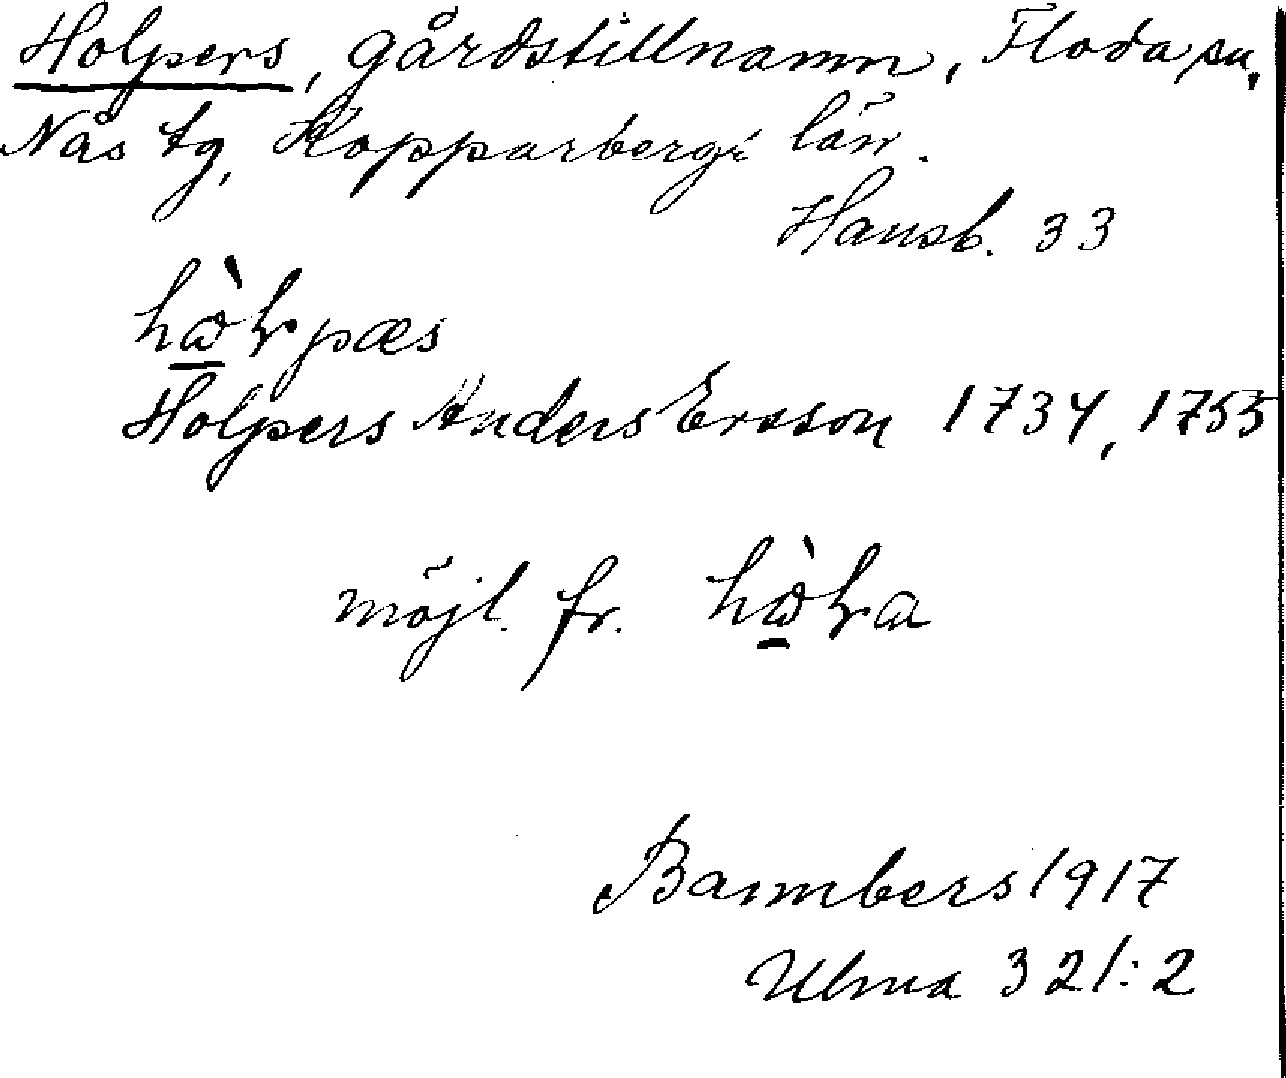 Holpers, gårdstillnamn, Floda sn,
Nås tg, Kopparbergs län.
Hansb. 33
Holpers Anders Ersson 1734, 1755
möjl. fr.
Bannbers 1917
Ulma 321:2